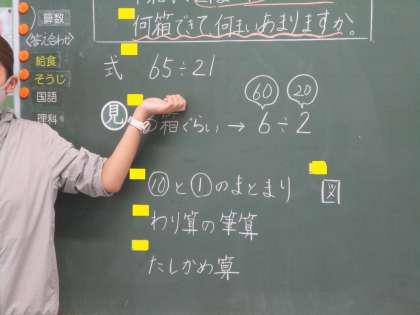 算数
答え合わせ
給食
そうじ
国語
理科
何箱できて何まいあまりますか。
式 65÷21
60 20
見 の箱ぐらい → 6÷2
⑩と①のまとまり 図
わり算の筆算
たしかめ算